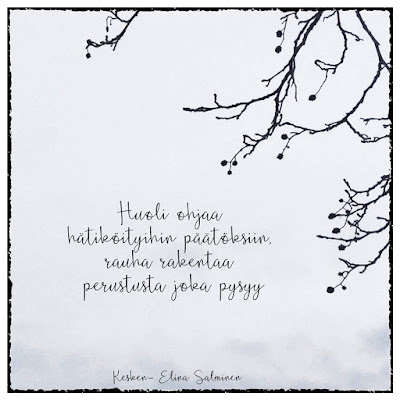 Huoli ohjaa
hätiköityihin päätöksiin,
rauha rakentaa
perustusta joka pysyy
Kesken- Elina Salminen